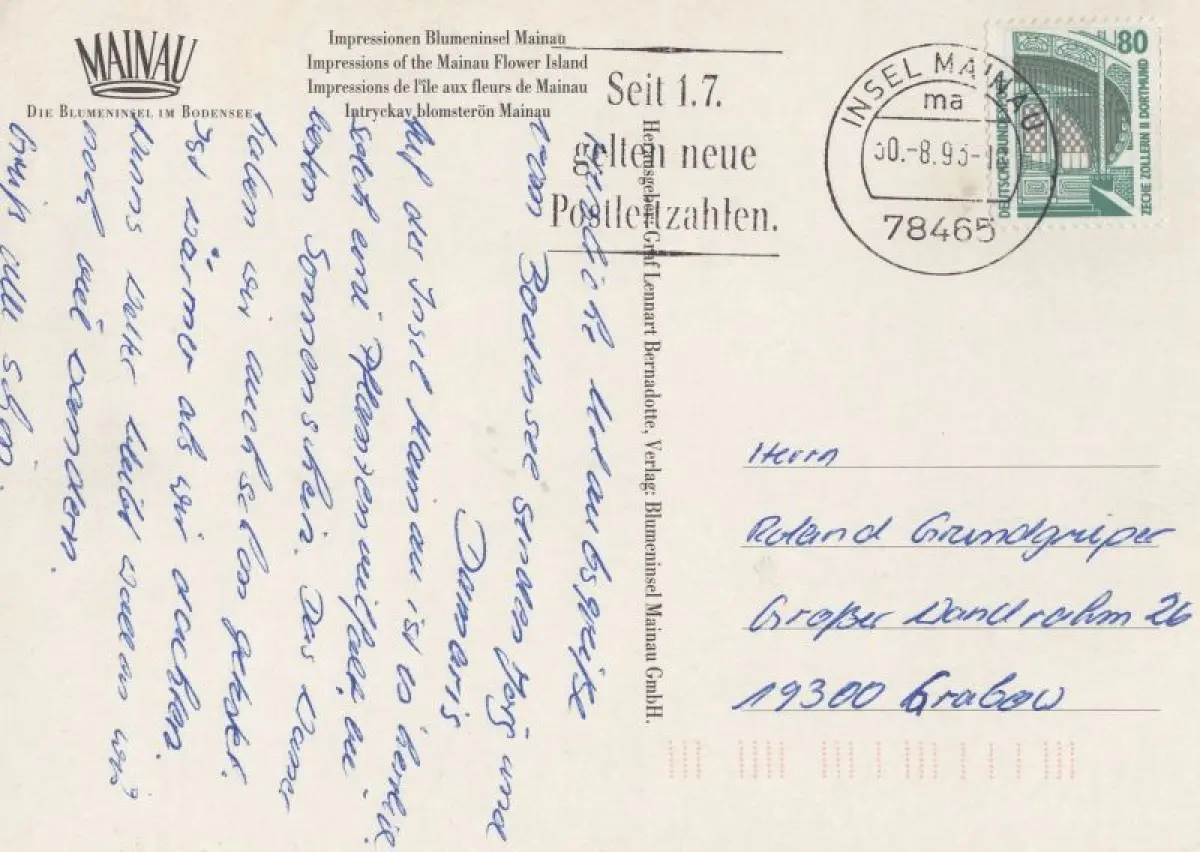 MAINAU
DIE BLUMENINSEL IM BODENSEE
Impressionen Blumeninsel Mainau
Impressions of the Mainau Flower Island
Impressions de l'île aux fleurs de Mainau
Intryckav blomsterön Mainau
Seit 1.7.
gelten neue
Postleitzahlen.
INSEL MAINAU
ma
30.-8.93-1
78465
80
DEUTSCHE BUNDESPOST
ZECHE ZOLLERN II DORTMUND
Herausgeber: Graf Lennart Bernadotte, Verlag: Blumeninsel Mainau GmbH.
Urlaubsgrüße
vom Bodensee senden Jörg und
Damaris
Auf der Insel Mainau ist es herrlich
solch eine Pflanzenvielfalt bei
besten Sonnenschein. Das Wasser
haben wir auch schon getestet.
Ist wärmer als wir dachten.
Wenns Wetter bleibt wollen wir
noch viel wandern.
Grüßt alle schön.
Herrn
Roland Grundgriper
Großer Wandrahm 26
19300 Grabow